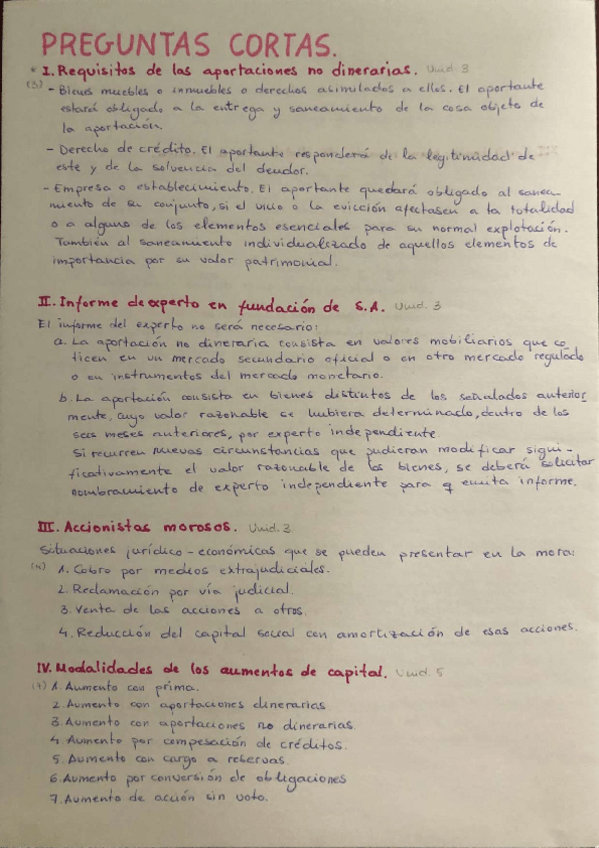 PREGUNTAS CORTAS.
* I. Requisitos de las aportaciones no dinerarias. Unid. 3
(3) - Bienes muebles o inmuebles o derechos asimilados a ellos. El aportante
estará obligado a la entrega y saneamiento de la cosa objeto de
la aportación.
- Derecho de crédito. El aportante responderá de la legitimidad de
este y de la solvencia del deudor.
- Empresa o establecimiento. El aportante quedará obligado al sanea-
miento de su conjunto, si el vicio o la evicción afectasen a la totalidad
o a alguno de los elementos esenciales para su normal explotación.
También al saneamiento individualizado de aquellos elementos de
importancia por su valor patrimonial.
II. Informe de experto en fundación de S.A. Unid. 3
El informe del experto no será necesario:
a. La aportación no dineraria consista en valores mobiliarios que co
ticen en un mercado secundario oficial o en otro mercado regulado
o en instrumentos del mercado monetario.
b. La aportación consista en bienes distintos de los señalados anterior
mente, cuyo valor razonable se hubiera determinado, dentro de los
seis meses anteriores, por experto independiente.
Si recurren nuevas circunstancias que pudieran modificar signi-
ficativamente el valor razonable de los bienes, se deberá solicitar
nombramiento de experto independiente para q emita informe.
III. Accionistas morosos. Unid. 3
Situaciones jurídico-económicas que se pueden presentar en la mora:
(4) 1. Cobro por medios extrajudiciales.
2. Reclamación por vía judicial.
3. Venta de las acciones a otros.
4. Reducción del capital social con amortización de esas acciones.
IV. Modalidades de los aumentos de capital. Unid. 5
(7) 1. Aumento con prima.
2. Aumento con aportaciones dinerarias
3. Aumento con aportaciones no dinerarias.
4. Aumento por compesación de créditos.
5. Aumento con cargo a reservas.
6. Aumento por conversión de obligaciones
7. Aumento de acción sin voto.